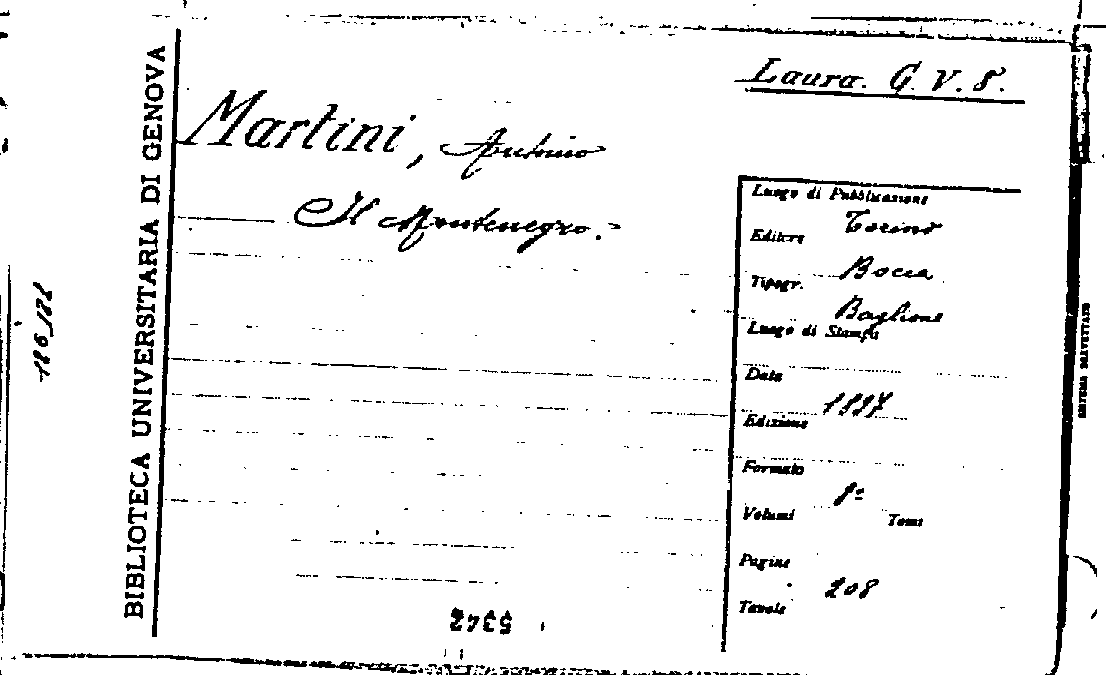 Laura. G. V. 8.
Martini, Antonio
Il Montenegro.-
BIBLIOTECA UNIVERSITARIA DI GENOVA
Luogo di Pubblicazione
Torino
Editore
Bocca
Tipogr.
Baglione
Luogo di Stampa
Data
1897
Edizione
Formato
8º
Volumi Tomi
Pagine
208
Tavole
5342
SISTEMA BREVETTATO